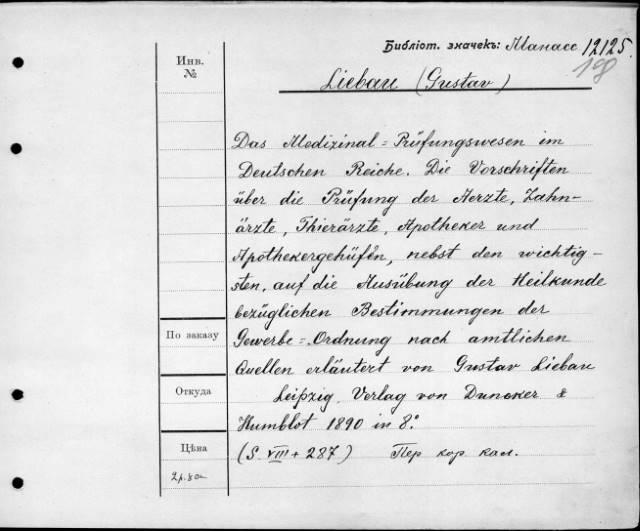 Библіот. значекъ: Манасс 12125.
18
Инв.
№
Liebau (Gustav)
Das Medizinal=Prüfungswesen im
Deutschen Reiche. Die Vorschriften
über die Prüfung der Aerzte, Zahn-
ärzte, Thierärzte, Apotheker und
Apothekergehüfen, nebst den wichtig-
sten, auf die Ausübung der Heilkunde
bezüglichen Bestimmungen der
По заказу
Gewerbe=Ordnung nach amtlichen
Quellen erläutert von Gustav Liebau
Откуда
Leipzig Verlag von Duncker &
Humblot 1890 in 8.°
Цѣна
(S. VIII + 287) Пер кор. кал.